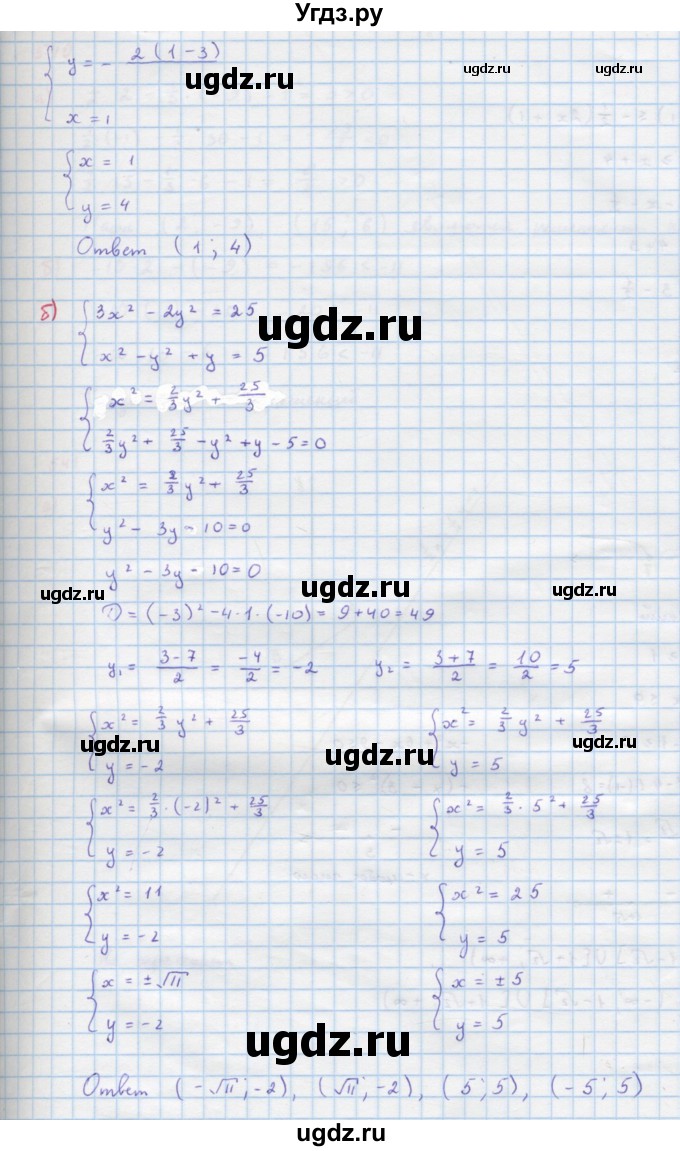 Угдз.ру
y = - 2(1-3)
ugdz.ru ugdz.ru ugdz.ru
x = 1
x = 1
y = 4
Ответ (1; 4)
б) 3x² - 2y² = 25
ugdz.ru
x² - y² + y = 5
x² = 2/3 y² + 25/3
2/3 y² + 25/3 - y² + y - 5 = 0
x² = 2/3 y² + 25/3
y² - 3y - 10 = 0
y² - 3y - 10 = 0
ugdz.ru ugdz.ru ugdz.ru
D = (-3)² - 4·1·(-10) = 9 + 40 = 49
y₁ = 3-7/2 = -4/2 = -2 y₂ = 3+7/2 = 10/2 = 5
x² = 2/3 y² + 25/3 x² = 2/3 y² + 25/3
ugdz.ru ugdz.ru ugdz.ru
y = -2 y = 5
x² = 2/3 · (-2)² + 25/3 x² = 2/3 · 5² + 25/3
y = -2 y = 5
x² = 11 x² = 25
y = -2 y = 5
x = ±√11 x = ±5
y = -2 y = 5
ugdz.ru
Ответ (-√11; -2), (√11; -2), (5; 5), (-5; 5)
ugdz.ru